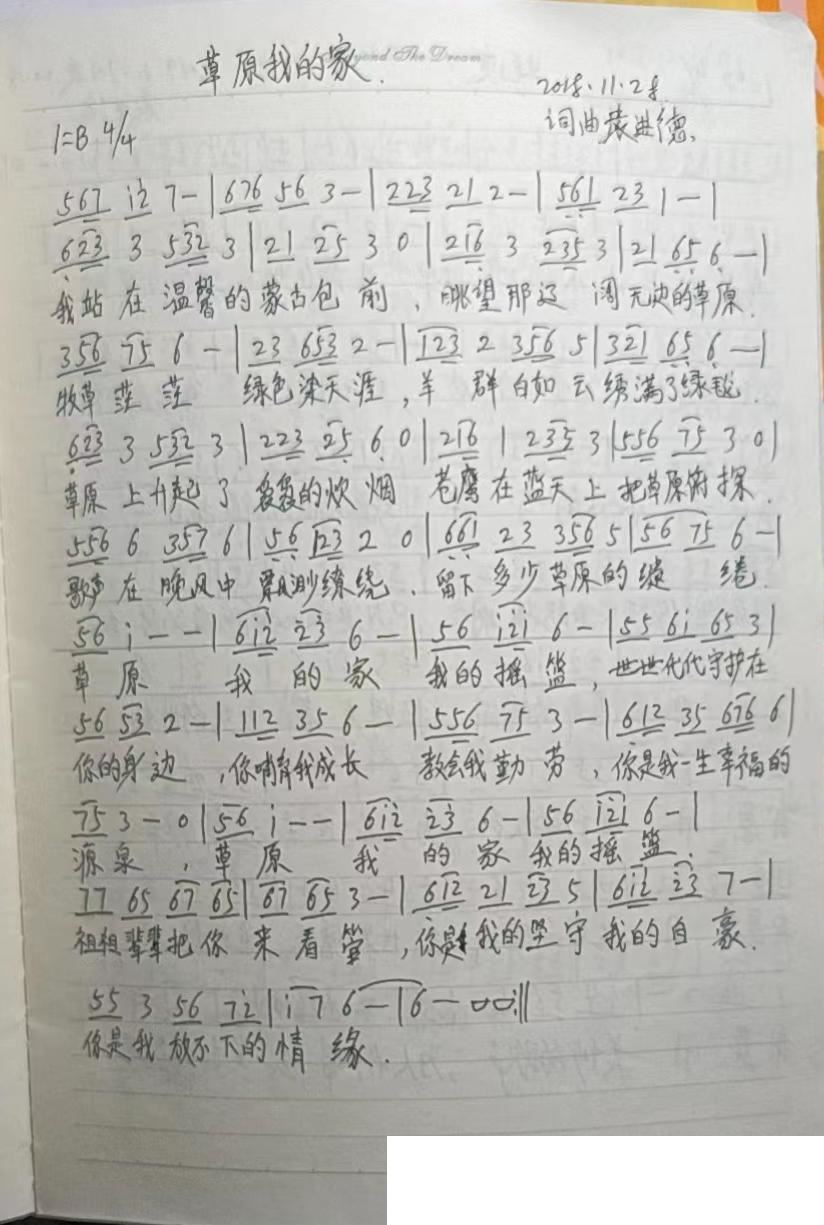 草原我的家.
Beyond The Dream
2018.11.28.
词曲 袁进德
1=B 4/4
567 i̇2̇ 7-|676 56 3-|223 21 2-|561 23 1-|
623 3 532 3|21 25 3 0|216 3 235 3|21 65 6-|
我站在温馨的蒙古包前，眺望那辽阔无边的草原.
356 75 6-|23 653 2-|123 2 356 5|321 65 6-|
牧草茫茫 绿色染天涯，羊群白如云绣满了绿毯.
623 3 532 3|223 25 6 0|216 1 235 3|556 75 3 0|
草原上升起了袅袅的炊烟 苍鹰在蓝天上把草原俯探.
556 6 357 6|56 123 2 0|661 23 356 5|56 75 6-|
歌声在晚风中飘渺缭绕、留下多少草原的缱绻.
56 i̇--|6i̇2̇ 2̇3̇ 6-|56 i̇2̇i̇ 6-|55 6i̇ 65 3|
草原 我的家 我的摇篮，世世代代守护在
56 53 2-|112 35 6-|556 75 3-|612 35 676 6|
你的身边，你哺育我成长 教会我勤劳，你是我一生幸福的
75 3-0|56 i̇--|6i̇2̇ 2̇3̇ 6-|56 i̇2̇i̇ 6-|
源泉，草原 我的家 我的摇篮.
77 65 67 65|67 65 3-|612 21 23 5|6i̇2̇ 2̇3̇ 7-|
祖祖辈辈把你来看管，你是我的坚守我的自豪.
55 3 56 7i̇|i̇7 6-|6-00:‖
你是我放不下的情缘.